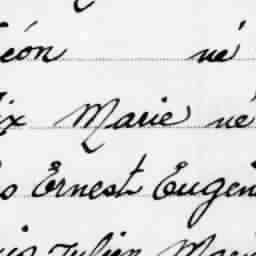 éon né
ix Marie né
o Ernest Eugen
is Julien Mari